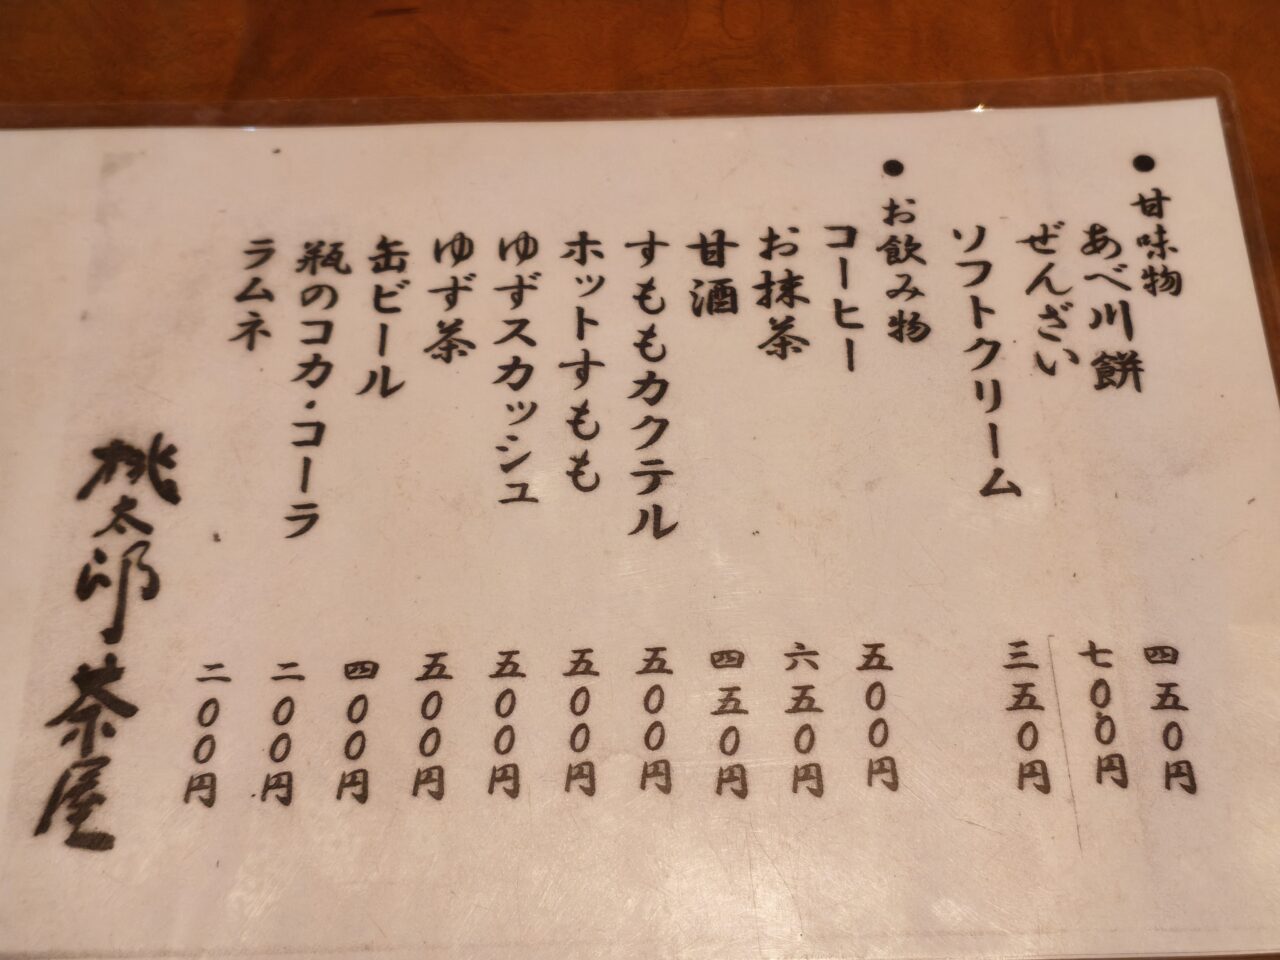 ●甘味物
あべ川餅 四五〇円
ぜんざい 七〇〇円
ソフトクリーム 三五〇円
●お飲み物
コーヒー 五〇〇円
お抹茶 六五〇円
甘酒 四五〇円
すももカクテル 五〇〇円
ホットすもも 五〇〇円
ゆずスカッシュ 五〇〇円
ゆず茶 五〇〇円
缶ビール 四〇〇円
瓶のコカ・コーラ 二〇〇円
ラムネ 二〇〇円
桃太郎茶屋